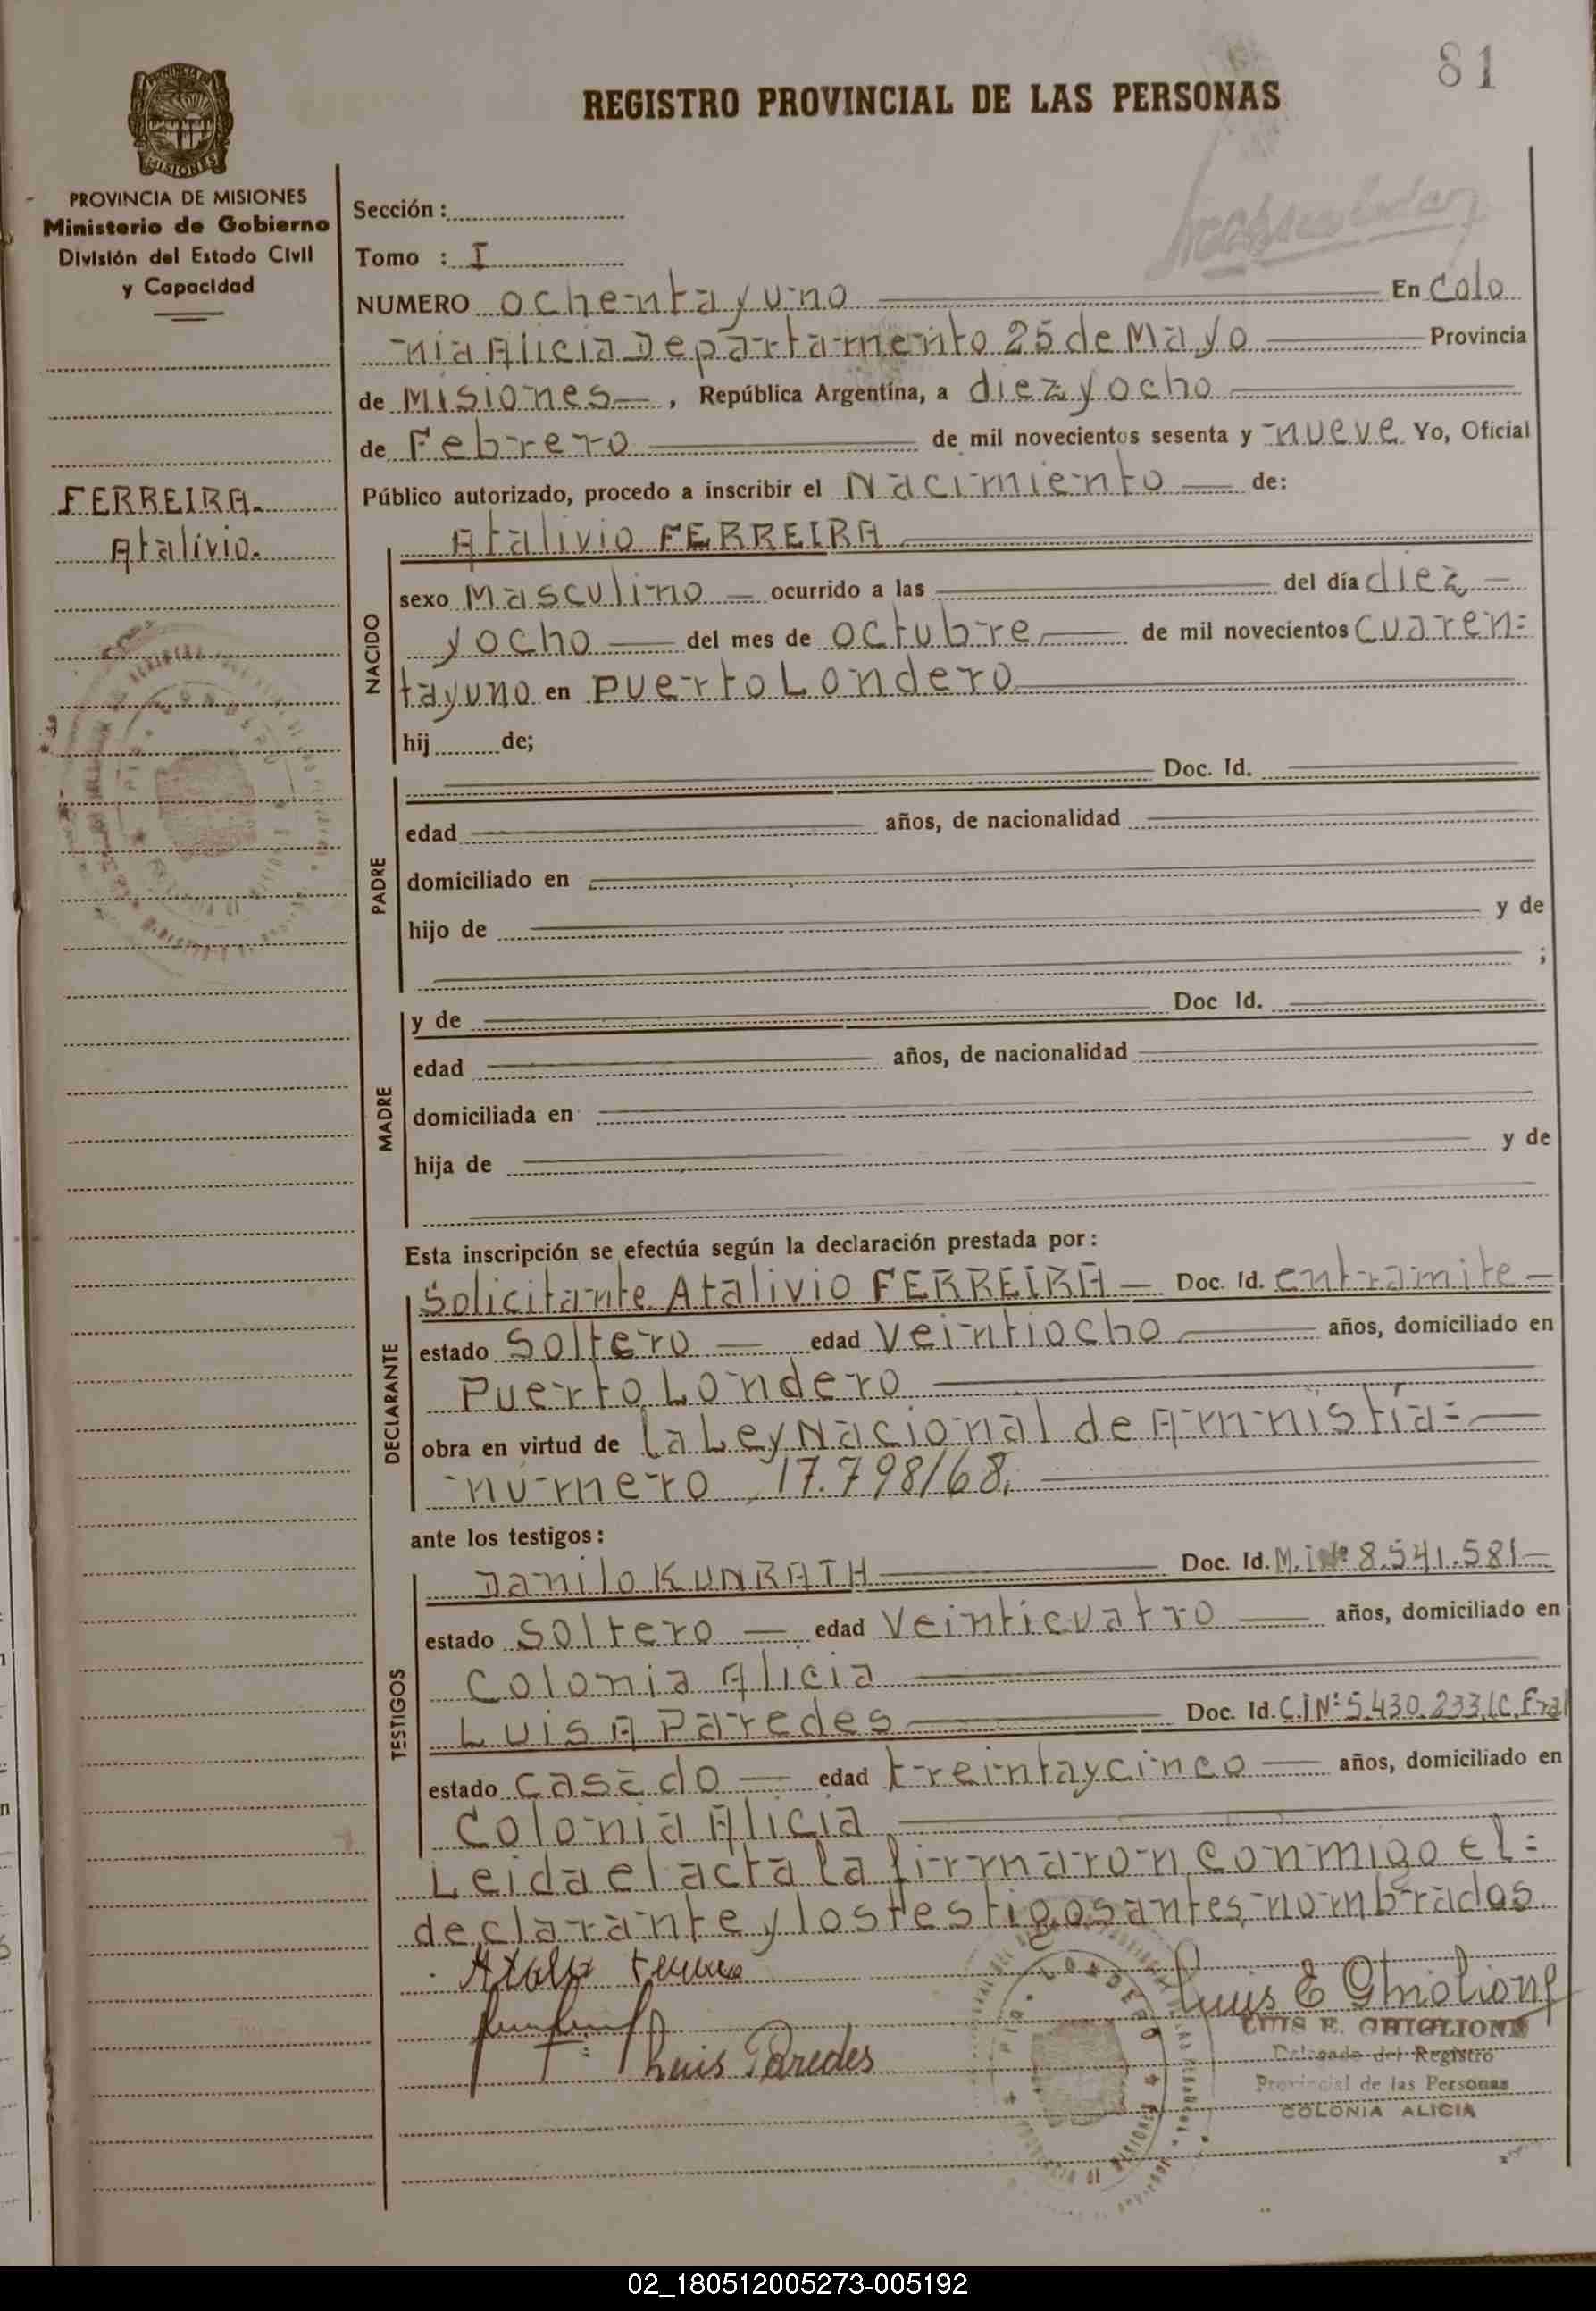 81
REGISTRO PROVINCIAL DE LAS PERSONAS
MISIONES
PROVINCIA DE MISIONES
Ministerio de Gobierno
División del Estado Civil
y Capacidad
FERREIRA.
Atalivio.
Sección :
Tomo : I
NUMERO ochenta y uno En Colo
nia Alicia Departamento 25 de Mayo Provincia
de Misiones , República Argentina, a diez y ocho
de Febrero de mil novecientos sesenta y nueve Yo, Oficial
Público autorizado, procedo a inscribir el Nacimiento de:
NACIDO
Atalivio FERREIRA
sexo Masculino ocurrido a las del día diez
y ocho del mes de octubre de mil novecientos cuaren=
tayuno en Puerto Londero
hij de;
PADRE
Doc. Id.
edad años, de nacionalidad
domiciliado en
hijo de y de
;
MADRE
y de Doc Id.
edad años, de nacionalidad
domiciliada en
hija de y de
Esta inscripción se efectúa según la declaración prestada por:
DECLARANTE
Solicitante Atalivio FERREIRA Doc. Id. entramite
estado Soltero edad Veintiocho años, domiciliado en
Puerto Londero
obra en virtud de la Ley Nacional de Amnistía=
número 17.798/68.
ante los testigos:
TESTIGOS
Danilo KUNRATH Doc. Id. M.I Nº 8.541.581
estado Soltero edad Veinticuatro años, domiciliado en
Colonia Alicia
Luis A Paredes Doc. Id. C.I Nº 5.430.233, C. Fral
estado casado edad treintaycinco años, domiciliado en
Colonia Alicia
Leida el acta la firmaron conmigo el=
declarante y los testigos antes nombrados
Luis E Ghiglione
Luis Paredes
LUIS E. GHIGLIONE
Delegado del Registro
Provincial de las Personas
COLONIA ALICIA
02_180512005273-005192